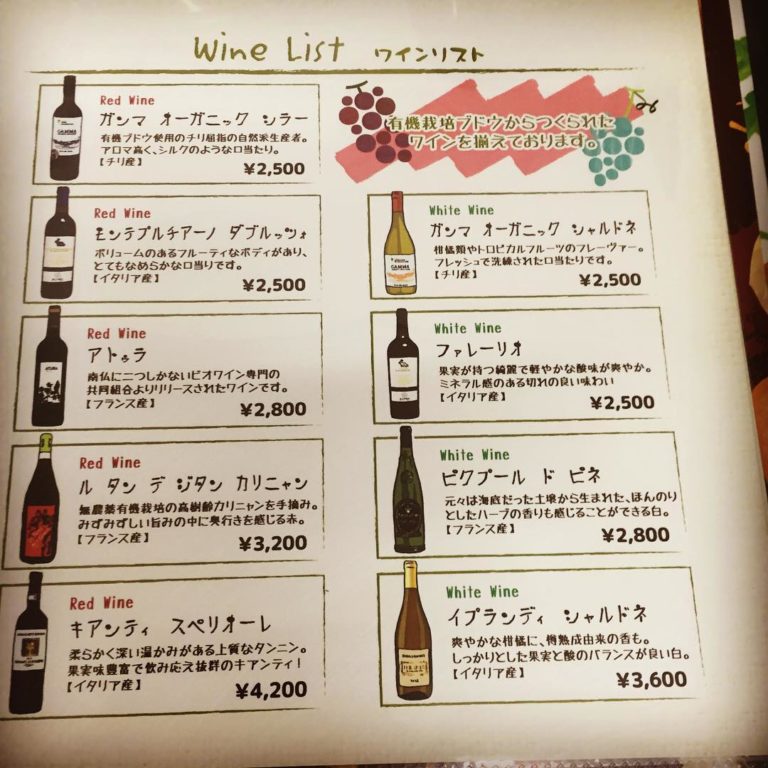 Wine List ワインリスト
Red Wine
ガンマ オーガニック シラー
有機ブドウ使用のチリ屈指の自然派生産者。
アロマ高く、シルクのような口当たり。
【チリ産】
¥2,500
Red Wine
モンテプルチアーノ ダブルッツォ
ボリュームのあるフルーティなボディがあり、
とてもなめらかな口当りです。
【イタリア産】
¥2,500
Red Wine
アトゥラ
南仏に二つしかないビオワイン専門の
共同組合よりリリースされたワインです。
【フランス産】
¥2,800
Red Wine
ル タン デ ジタン カリニャン
無農薬有機栽培の高樹齢カリニャンを手摘み。
みずみずしい旨みの中に奥行きを感じる赤。
【フランス産】
¥3,200
Red Wine
キアンティ スペリオーレ
柔らかく深い温かみがある上質なタンニン。
果実味豊富で飲み応え抜群のキアンティ!
【イタリア産】
¥4,200
有機栽培ブドウからつくられた
ワインを揃えております。
White Wine
ガンマ オーガニック シャルドネ
柑橘類やトロピカルフルーツのフレーヴァー。
フレッシュで洗練された口当たりです。
【チリ産】
¥2,500
White Wine
ファレーリオ
果実が持つ綺麗で軽やかな酸味が爽やか。
ミネラル感のある切れの良い味わい
【イタリア産】
¥2,500
White Wine
ピクプール ド ピネ
元々は海底だった土壌から生まれた、ほんのり
としたハーブの香りも感じることができる白。
【フランス産】
¥2,800
White Wine
イプランディ シャルドネ
爽やかな柑橘に、樽熟成由来の香も。
しっかりとした果実と酸のバランスが良い白。
【イタリア産】
¥3,600